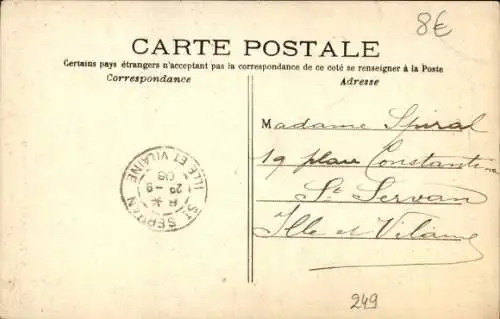 8€
CARTE POSTALE
Certains pays étrangers n'acceptant pas la correspondance de ce coté se renseigner à la Poste
Correspondance
Adresse
Madame Spiral
19 place Constantine
St Servan
Ille et Vilaine
ST SERVAN
ILLE ET VILAINE
29 - 9
08
249